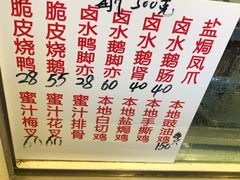 500克
脆皮烧鸭 28
脆皮烧鹅 55
卤水鸭脚亦 28
卤水鹅脚亦 60
卤水鹅肾 40
卤水鹅肠 40
盐焗凤爪
蜜汁梅叉
蜜汁花叉
蜜汁排骨
本地白切鸡
本地盐焗鸡
本地手撕鸡
本地豉油鸡
150